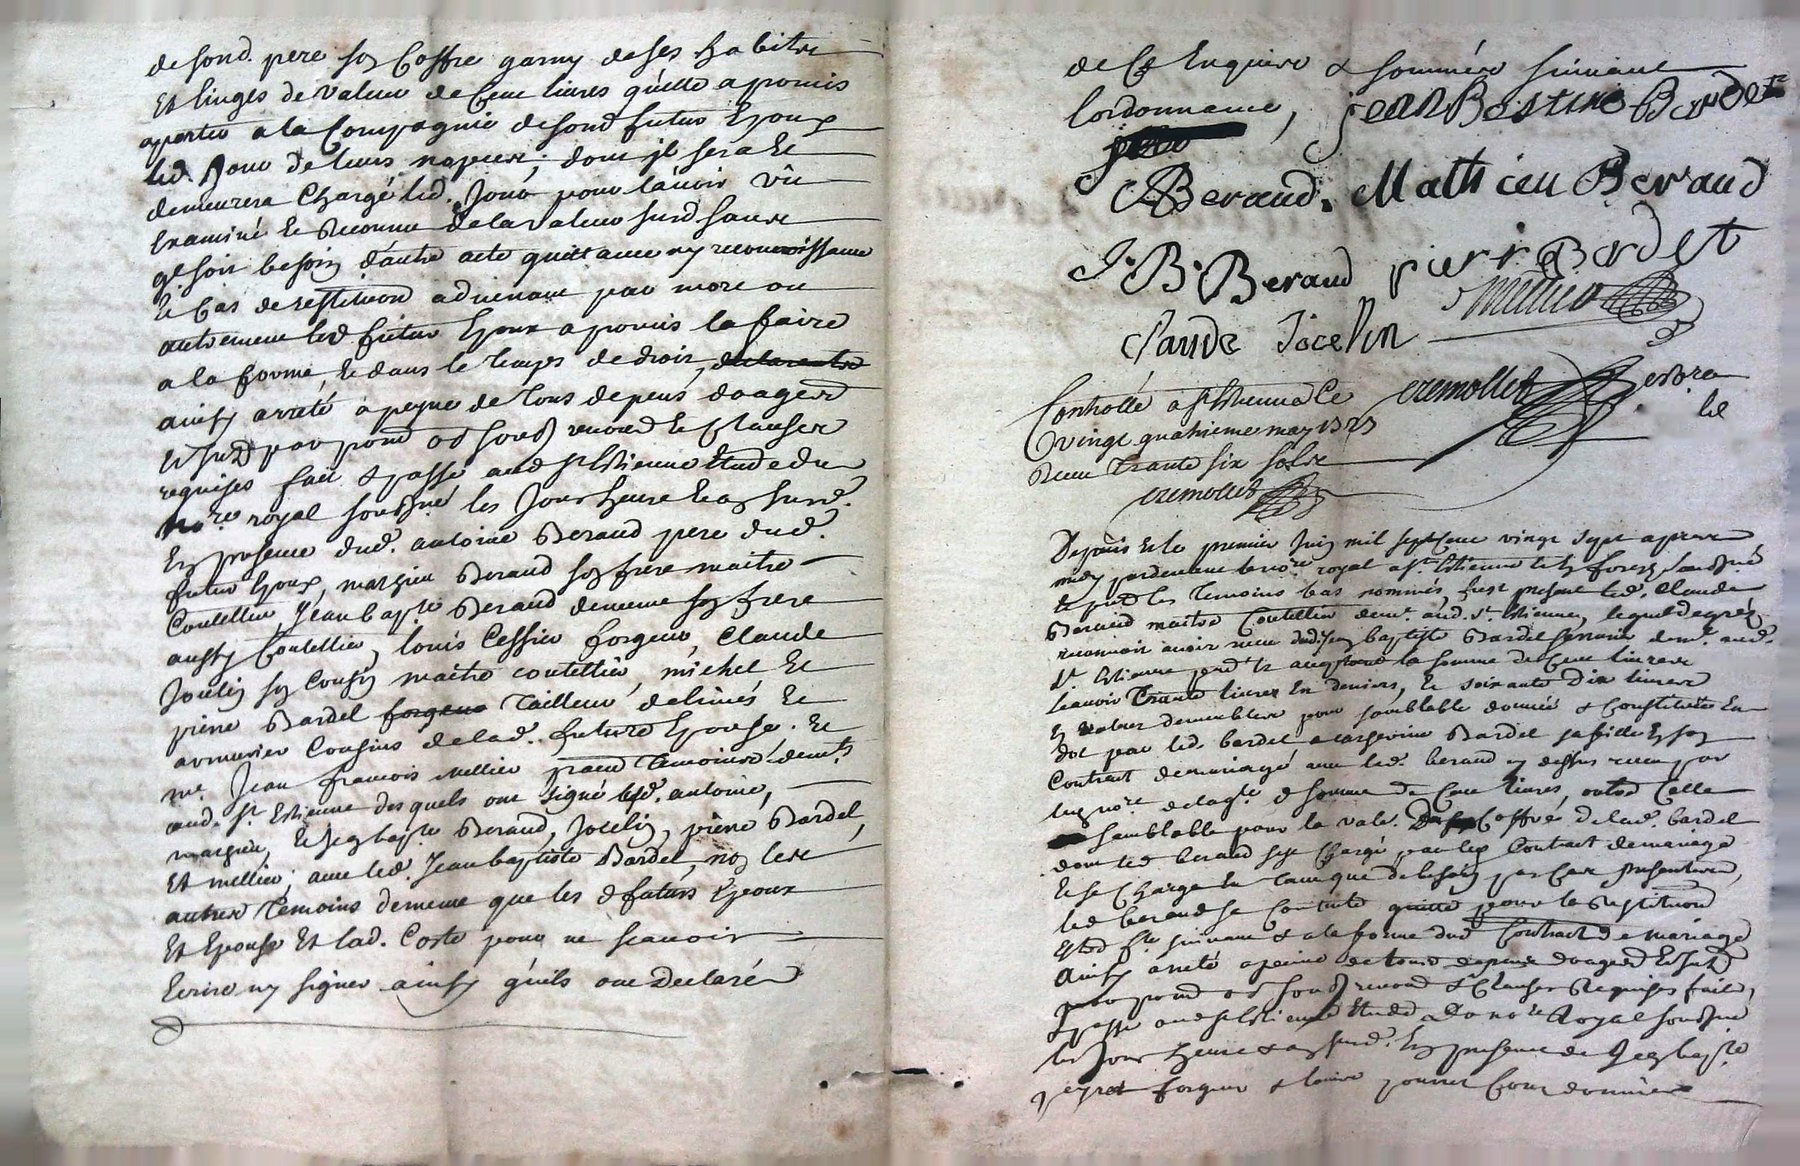 de sond. pere son Coffre garny de ses habits
Et linges de valeur de Cent livres quelle a promis
aporter a la Compagnie de sond futur Epoux
led. Jour de leurs nopces, dont jl sera et
demeurera Chargé led. Jour pour lavoir vû
Examiné et Reconnu de la valeur susd sans
ql soit besoin d'autre acte quittance ny reconnoissance
Et Cas de restitution advenant par mort ou
autrement led futur Epoux a promis la faire
a la forme, et dans le temps de droit,
ainsy arreté a peyne de tous depens domages
et Clauses
requises fait & passé aud St Estienne Etude du
nore royal soussigné les Jour heure et an susd.
En presence dud. antoine Beraud pere dud.
futur Epoux, mathieu Beraud son frere maitre
Coutellier, Jean bapte Beraud dememe son frere
aussy Coutellier, louis Cessier forgeur, Claude
Jocelin son Cousin maitre coutellier, michel Et
pierre Bardel forgeur Tailleur de limes Et
armurier Cousins de lad. future Epouse. Et
me. Jean francois mellier praticien Temoins demts
aud. St. Estienne desquels ont signé lesd. antoine,
mathieu, et Jean bapte Beraud, Jocelin, pierre Bardel,
Et mellier, avec led. Jean baptiste Bardel, non les
autres Temoins demême que les d futurs Epoux
Et Epouse Et lad. Coste pour ne scavoir
Ecrire ny signer ainsy qu'ils ont Declaré
de Ce Enquis & sommés suivant
lordonnance, jean Bastiste Bardel
Beraud. Mathieu Beraud
J. B. Beraud pierre Bardet
mellier
Claude Jocelin
Controllé a St Etienne le
vingt quatrieme may 1727
Receu Trante six sols
cremollet
cremollet
Depuis Et le premier Juin mil sept Cent vingt sept apres
midy pardevant le nore royal a St. Estienne en forez soussigné
et presents les Temoins bas nommés, fust present led. Claude
Beraud maitre Coutellier demt. aud. St. Estienne, lequel de gré
reconnoit avoir receu dud Jean baptiste Bardel demt. aud.
St. Estienne present et acceptant la somme de Cent livres
scavoir Trante livres En deniers, Et soixante Dix livres
En valeur de meubles pour semblable donnée & Constituée En
dot par led. bardel a Bardel sa fille En son
Contract de mariage avec led. beraud cy dessus receu par
led nore de lad somme de Cent livres, outre Celle
semblable pour la vale. du Coffre de lad. bardel
dont led beraud sest chargé par led Contract de mariage
Et se Charge En tant que de besoin par Ces presentes,
led beraud se Contente quitte pour la Restitution
Estre fte suivant & a la forme dud Contract de mariage
Ainsy arreté a peine de tous depens domages
renond & Clauses Requises fait,
& passé aud St Estienne Etude du nore Royal soussigné
les Jour heure & an susd. En presence de Jean bapte
peyret forgeur & louis